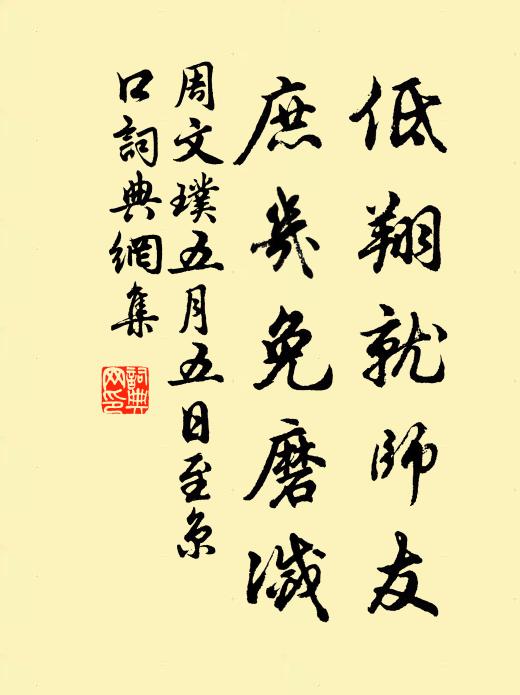 低翔就師友
庶幾免磨滅
周文璞五月五日至京
口詞典網集
詞典网印